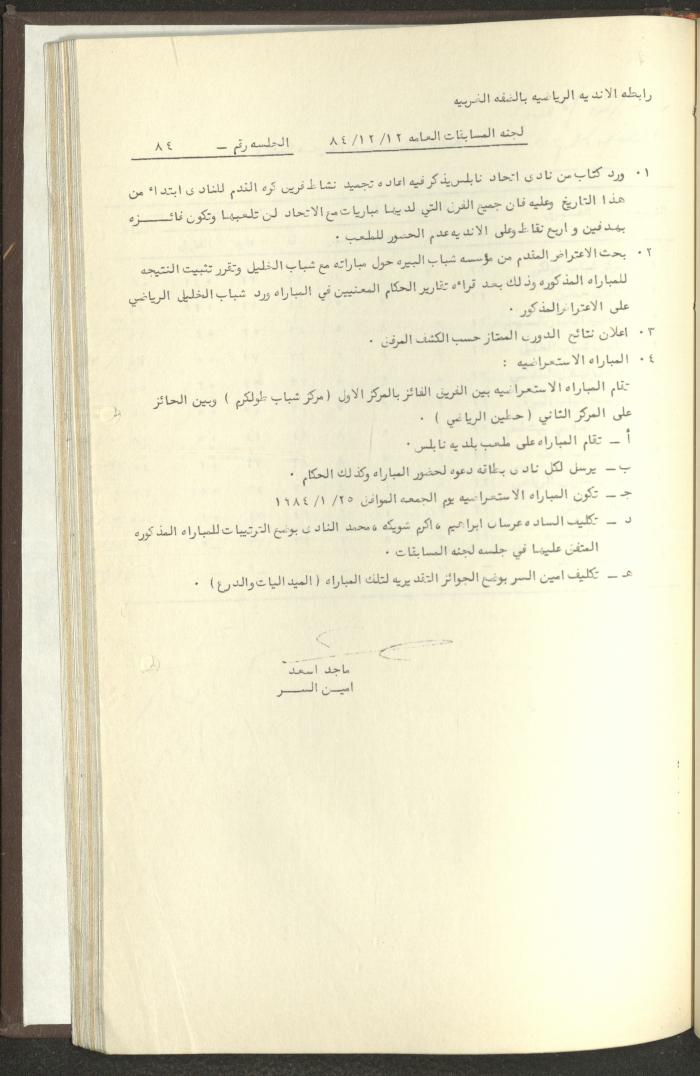 رابطه الاندية الرياضيه بالضفه الغربيه
لجنه المسابقات العامه ٨٤/١٢/١٢ الجلسه رقم — ٨٤
٠١ ورد كتاب من نادى اتحاد نابلس يذكر فيه اعاده تجميد نشاط فريق كره القدم للنادى ابتداء من
هذا التاريخ وعليه فان جميع الفرق التي لديها مباريات مع الاتحاد لن تلعبها وتكون فائـــزه
بهدفين و اربع نقاط وعلى الانديه عدم الحضور للملعب ٠
٠٢ بحث الاعتراض المقدم من مؤسسه شباب البيره حول مباراته مع شباب الخليل وتقرر تثبيت النتيجه
للمباراه المذكوره وذلك بعد قراءه تقارير الحكام المعنيين في المباراه ورد شباب الخليل الرياضي
على الاعتراض المذكور ٠
٠٣ اعلان نتائج الدورى الممتاز حسب الكشف المرفق ٠
٠٤ المباراه الاستعراضيه :
تقام المباراه الاستعراضيه بين الفريق الفائز بالمركز الاول ( مركز شباب طولكرم ) وبين الحائز
على المركز الثاني ( حطين الرياضي ) ٠
أ — تقام المباراه على ملعب بلديه نابلس ٠
ب — يرسل لكل نادى بطاقه دعوه لحضور المباراه وكذلك الحكام ٠
جـ — تكون المباراه الاستعراضيه يوم الجمعه الموافق ٢٥/ ١/ ١٩٨٤
د — تكليف الساده عرسان ابراهيم ، اكرم شويكه ، محمد النادى بوضع الترتيبات للمباراه المذكوره
المتفق عليها في جلسه لجنه المسابقات ٠
هـ — تكليف امين السر بوضع الجوائز التقديريه لتلك المباراه ( الميداليات والدرع ) ٠
ماجد اسعد
اميـن الســـر